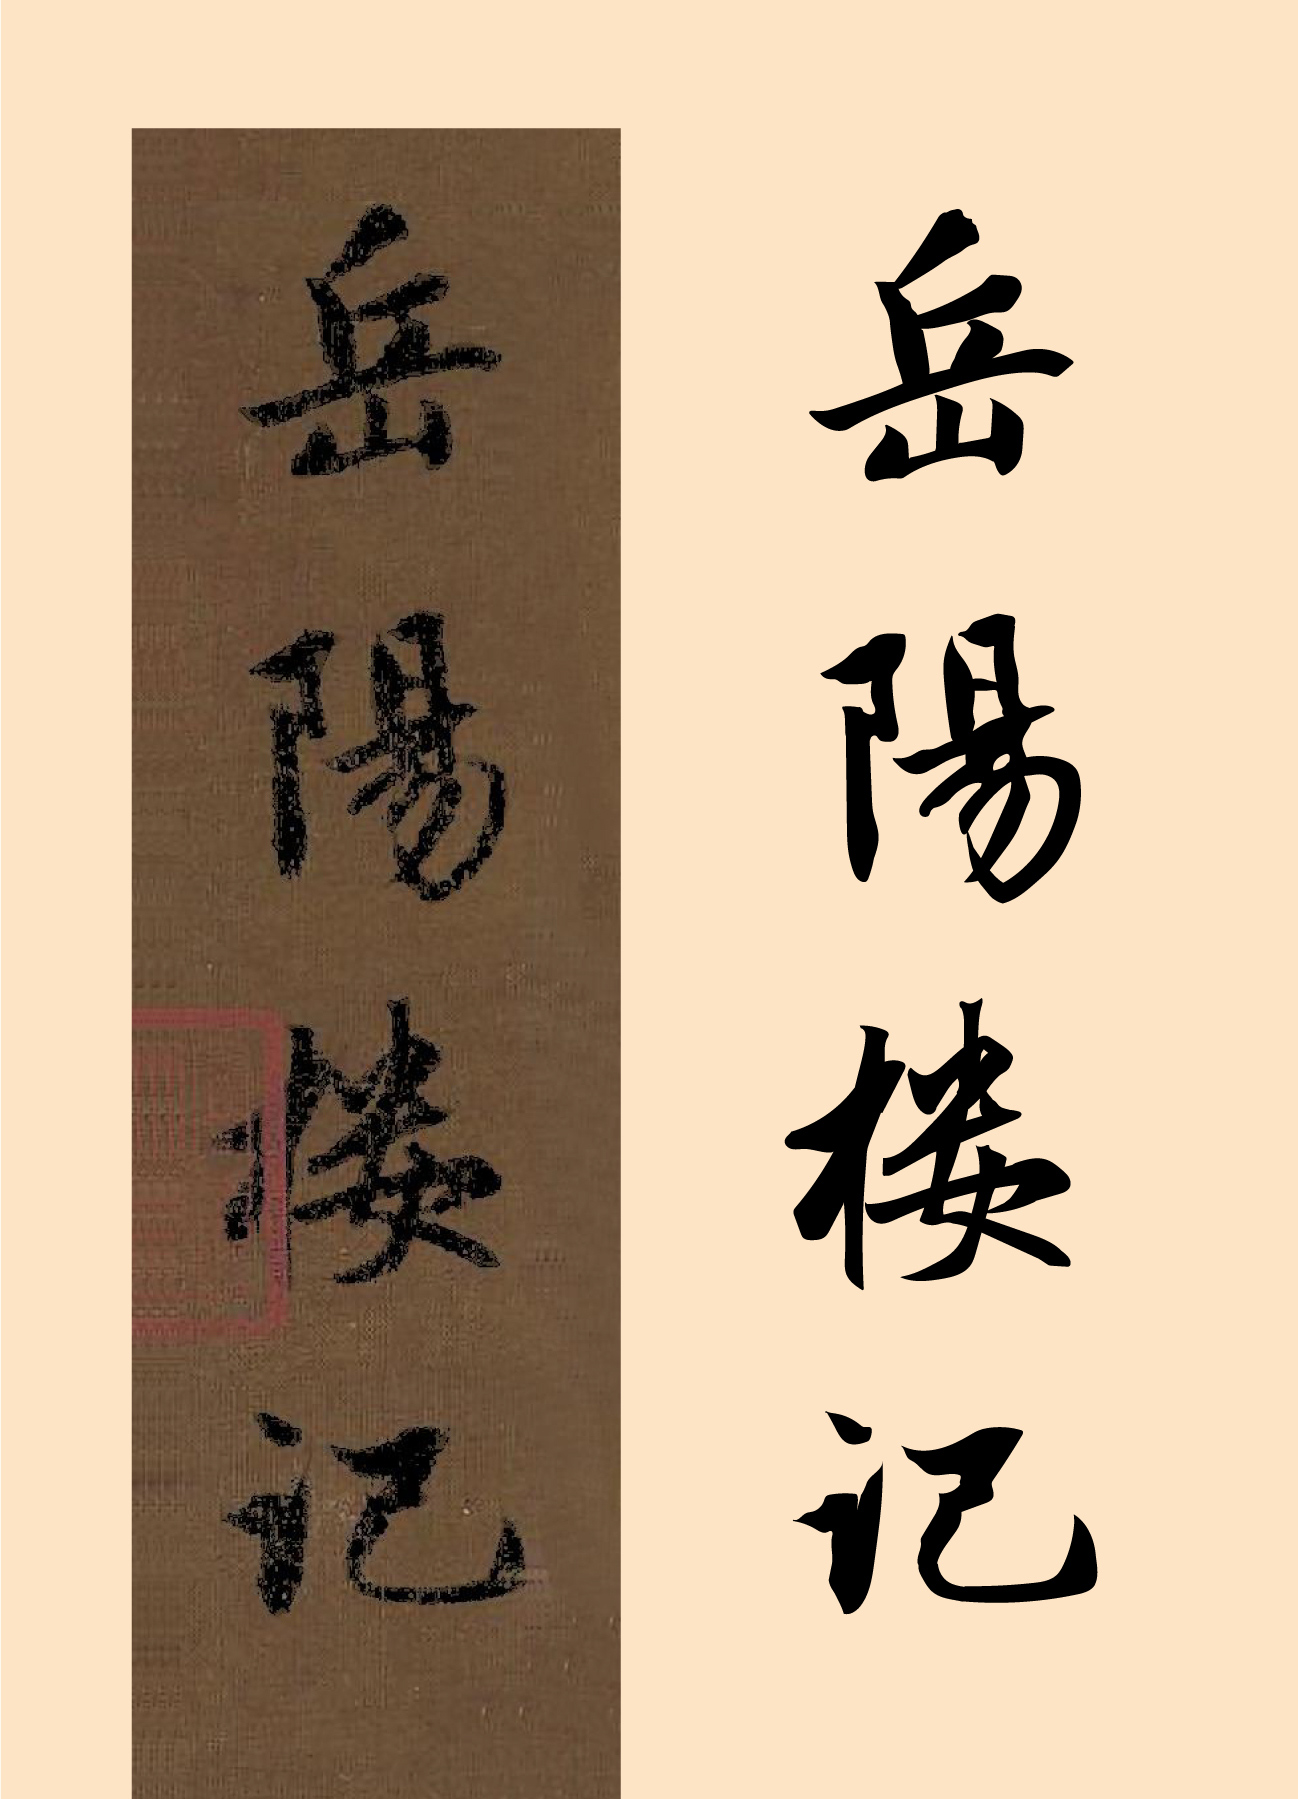 岳陽楼记
岳陽楼记